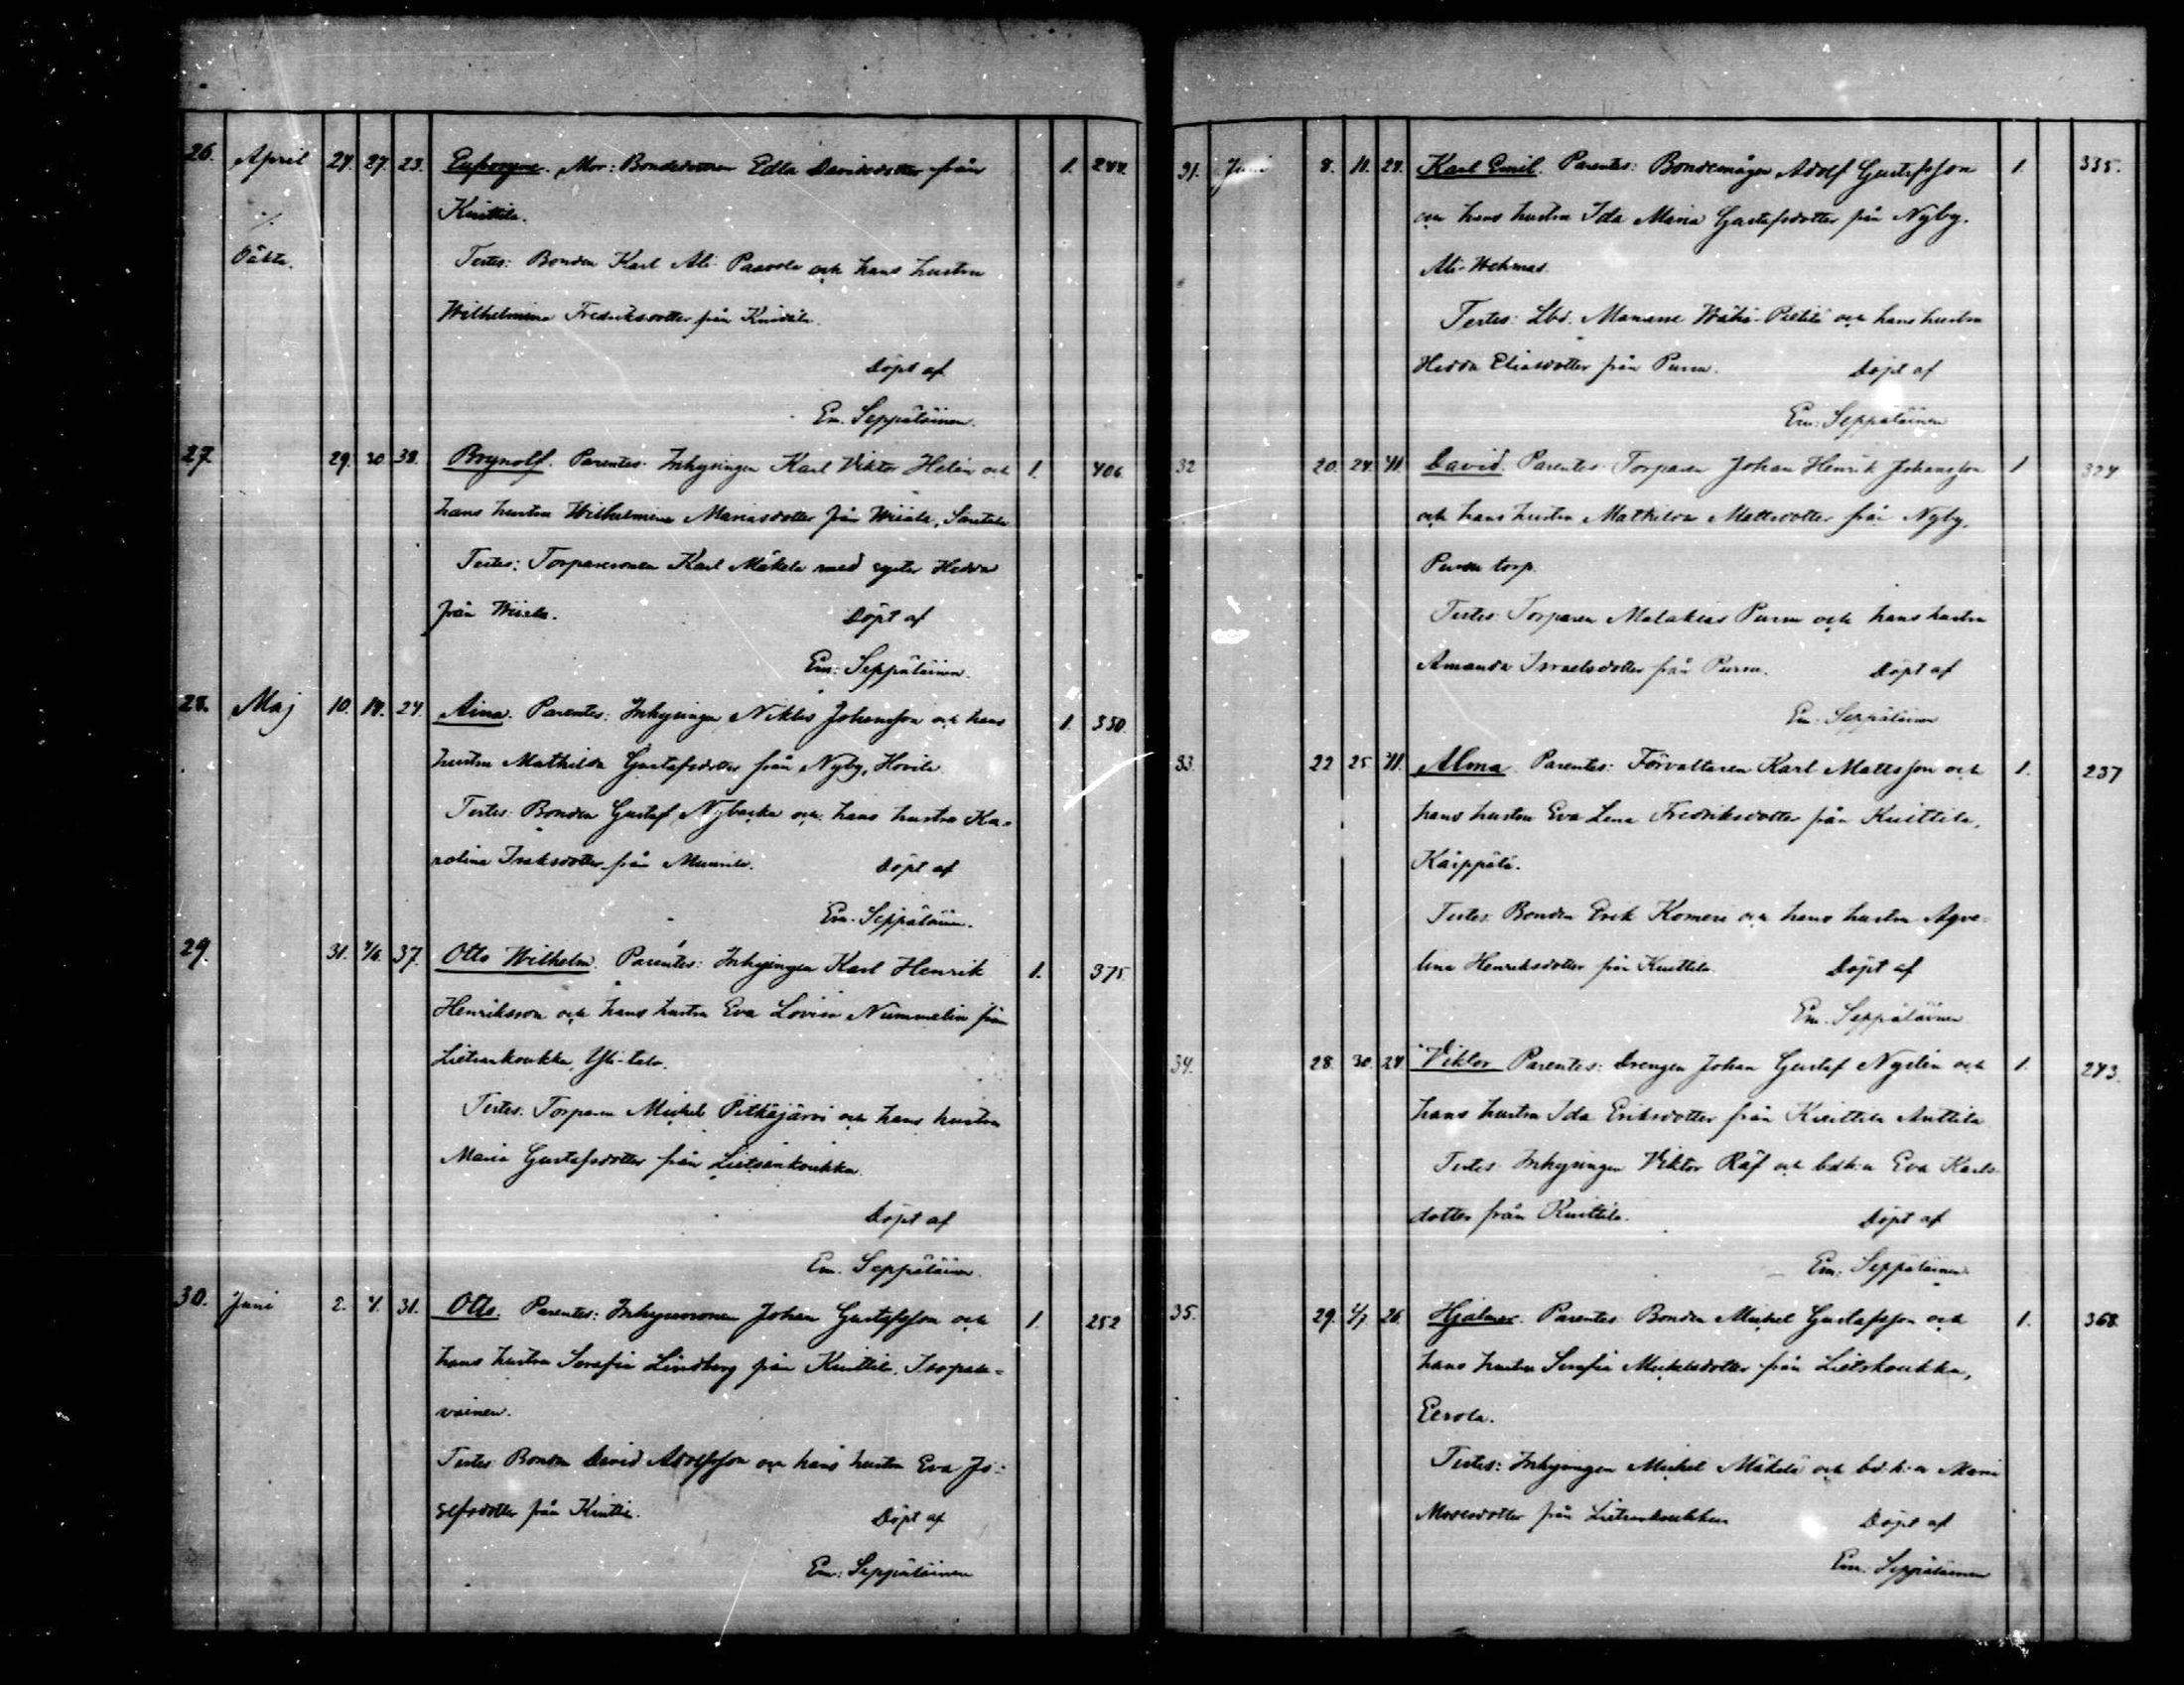 26. April 24. 27. 23. Eufrosyne. Mor: Bondedottern Edla Davidsdotter från 1. 244.
Knittilä.
Oäkta. Testes: Bonden Karl Ali-Paavola och hans hustru
Wilhelmina Fredriksdotter från Knittilä.
Döpt af
Em. Seppäläinen.
27. 29. 30. 38. Brynolf. Parentes: Inhysingen Karl Viktor Helin och 1. 406.
hans hustru Wilhelmina Mariasdotter från Wiiala,
Testes: Torparesonen Karl Mäkelä med syster Hedda
från Wiiala. Döpt af
Em. Seppäläinen.
28. Maj 10. 14. 24. Aina. Parentes: Inhysingen Niklas Johansson och hans 1. 350.
hustru Mathilda Gustafsdotter från Nyby, Hovila
Testes: Bonden Gustaf Nybacka och hans hustru Ka-
rolina Isaksdotter från Döpt af
Em. Seppäläinen.
29. 31. 4/6. 37. Otto Wilhelm. Parentes: Inhysingen Karl Henrik 1. 375.
Henriksson och hans hustru Eva Lovisa Nummelin från
Lietsankoukka, Yli-talo.
Testes: Torparen Michel Pitkäjärvi och hans hustru
Maria Gustafsdotter från Lietsankoukka.
Döpt af
Em. Seppäläinen.
30. Juni 2. 4. 31. Otto. Parentes: Inhysesonen Johan Gustafsson och 1. 252
hans hustru Serafia Lindberg från Knittilä, Isopaa-
vainen.
Testes: Bonden David Adolfsson och hans hustru Eva Jo-
sefsdotter från Knittilä. Döpt af
Em. Seppäläinen
31. Juni 8. 11. 24. Karl Emil. Parentes: Bondemågen Adolf Gustafsson 1. 335.
och hans hustru Ida Maria Gustafsdotter från Nyby,
Ali-Wehmas.
Testes: Lbd. Manasse Wähä-Pietilä och hans hustru
Hedda Eliasdotter från Purru. Döpt af
Em. Seppäläinen
32 20. 24. 41. David. Parentes: Torparen Johan Henrik Johansson 1 324
och hans hustru Mathilda Mattsdotter från Nyby,
Purru torp.
Testes: Torparen Malakias Purru och hans hustru
Amanda Israelsdotter från Purru. Döpt af
Em. Seppäläinen
33. 22 25. 41. Alma. Parentes: Förvaltaren Karl Mattsson och 1. 237
hans hustru Eva Lena Fredriksdotter från Knittilä,
Käippälä.
Testes: Bonden Erik Komeri och hans hustru Agve-
lina Henriksdotter från Knittilä. Döpt af
Em. Seppäläinen
34. 28. 30. 24. Viktor. Parentes: Drengen Johan Gustaf Nystén och 1. 243.
hans hustru Ida Eriksdotter från Knittilä Anttila
Testes: Inhysingen Viktor Räf och bdh:n Eva Karls-
dotter från Knittilä. Döpt af
Em. Seppäläinen.
35. 29. 2/7 26. Hjalmar. Parentes: Bonden Michel Gustafsson och 1. 368.
hans hustru Serafia Michelsdotter från Lietskoukka,
Eerola.
Testes: Inhysingen Michel Mäkelä och bd.h:n Maria
Mosesdotter från Lietsankoukka Döpt af
Em. Seppäläinen